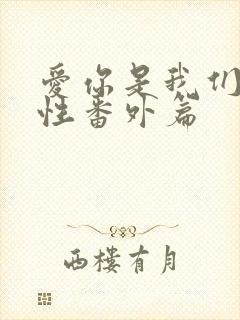 爱你是我们
性番外篇
西楼有月